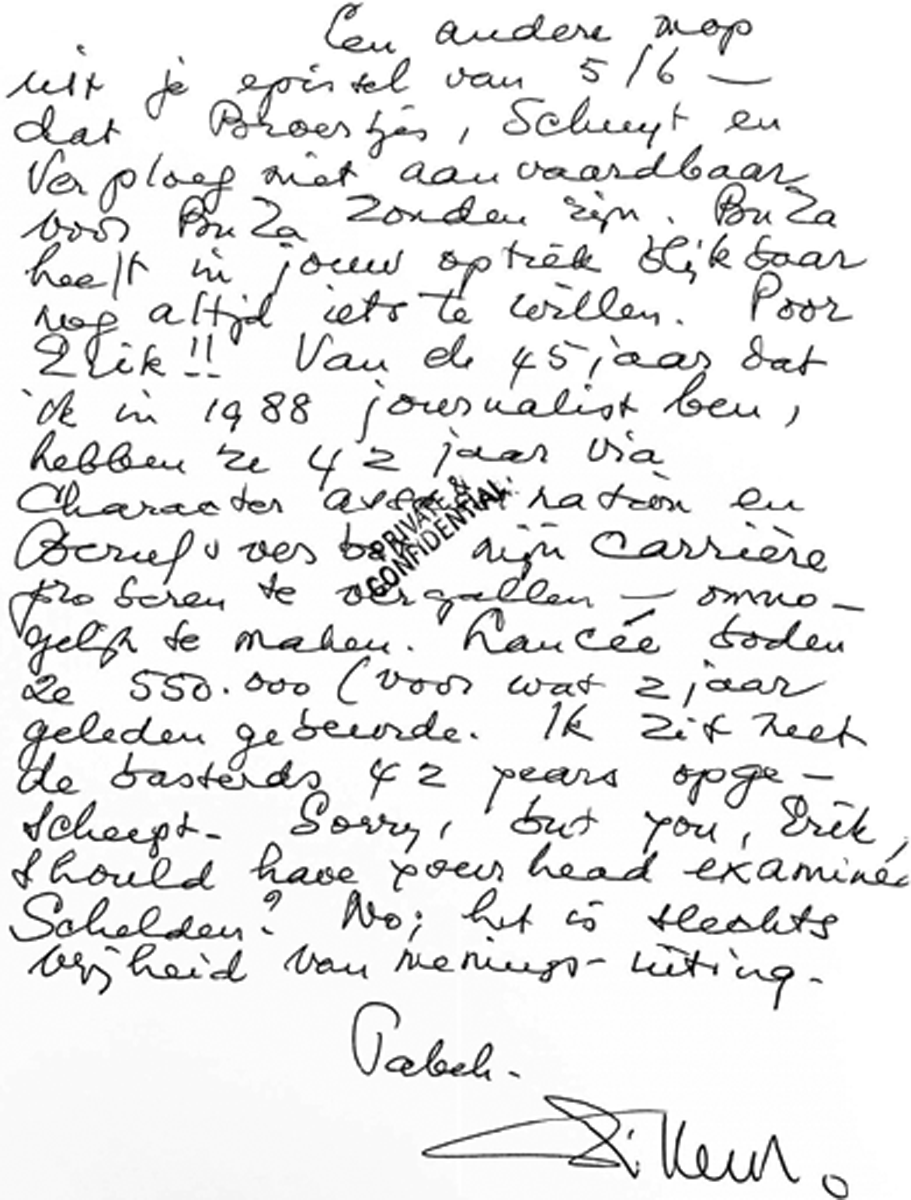 Een andere mop
uit je epistel van 5/6 —
dat Broertjes, Schuyt en
Verploeg niet aanvaardbaar
voor BuZa zouden zijn. BuZa
heeft in jouw optiek blijkbaar
nog altijd iets te willen. Poor
Erik!! Van de 45 jaar dat
ik in 1988 journalist ben,
hebben ze 42 jaar via
Character assassination en
Berufsverbot mijn carrière
proberen te vergallen — onmo-
gelijk te maken. Lancée boden
ze 550.000 (voor wat 2 jaar
geleden gebeurde. Ik zit met
de basterds 42 years opge-
scheept. Sorry, but you, Erik,
should have your head examined
Schelden? No; het is slechts
vrijheid van menings-uiting.
Tabeh.
PRIVATE &
CONFIDENTIAL.